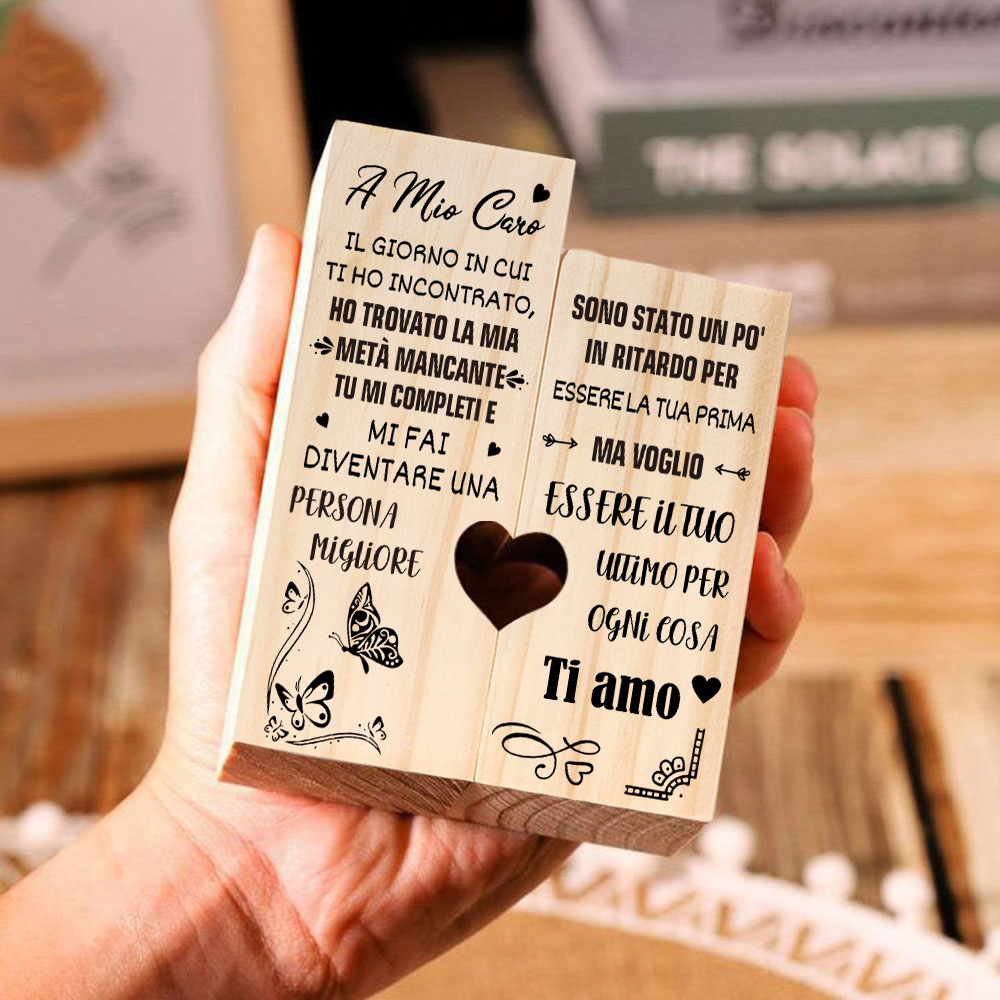 A Mio Caro
IL GIORNO IN CUI
TI HO INCONTRATO,
HO TROVATO LA MIA
METÀ MANCANTE
TU MI COMPLETI E
MI FAI
DIVENTARE UNA
PERSONA
MIGLIORE
SONO STATO UN PO'
IN RITARDO PER
ESSERE LA TUA PRIMA
MA VOGLIO
ESSERE IL TUO
ULTIMO PER
OGNI COSA
Ti amo
THE SOLACE